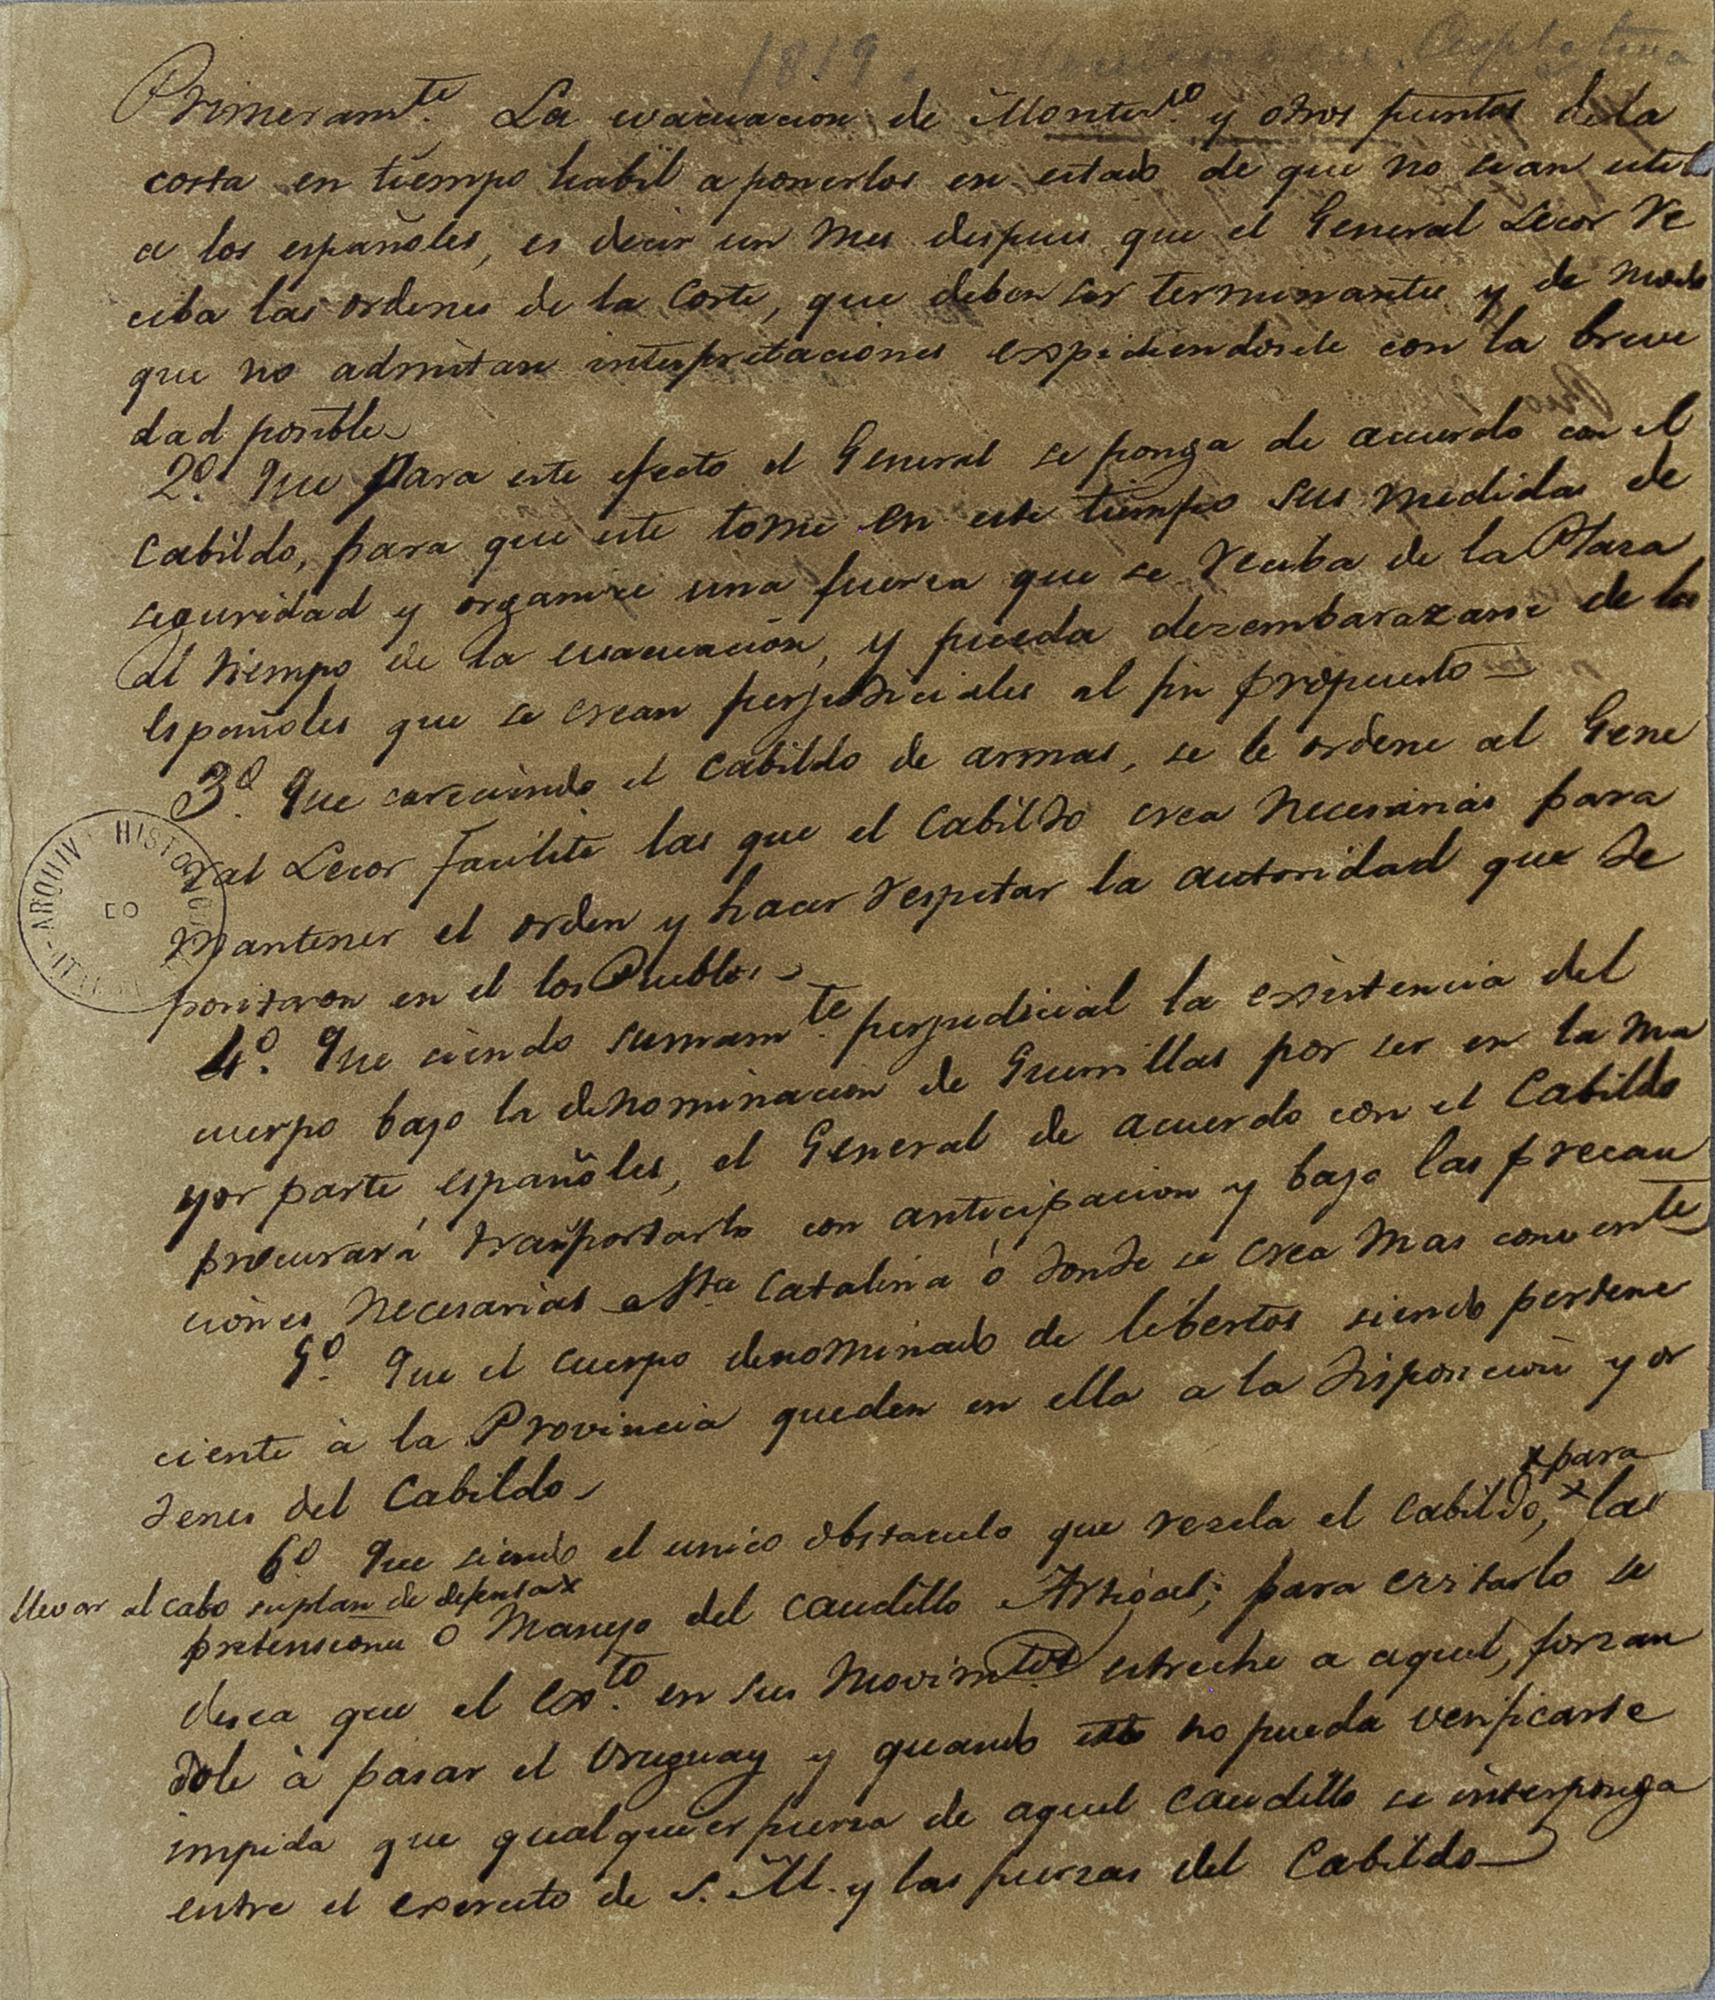 1819.
Primeram.te La evacuacion de Montev.o y otros puntos de la
costa en tiempo habil a ponerlos en estado de que no sean utiles
a los españoles, es decir un mes despues que el General Lecor re
ciba las ordenes de la Corte, que deben ser terminantes y de modo
que no admitan interpretaciones expidiendosele con la breve
dad posible
2.o Que para este efecto el General se ponga de acuerdo con el
Cabildo, para que este tome en este tiempo sus medidas de
seguridad y organize una fuerza que se reciba de la Plaza
al tiempo de la evacuación, y pueda dezembarazarse de los
Españoles que se crean perjudiciales al fin propuesto
3.o Que careciendo el Cabildo de armas, se le ordene al Gene
ral Lecor facilite las que el Cabildo crea necesarias para
mantener el orden y hacer respetar la autoridad que de
positaron en el los Pueblos
4.o Que siendo sumam.te perjudicial la existencia del
cuerpo bajo la denominacion de Guerrillas por ser en la ma
yor parte españoles, el General de acuerdo con el Cabildo
procurará transportarlo con anticipacion y bajo las precau
ciones necesarias a Sta Catalina ó donde se crea mas convente
5.o Que el cuerpo denominado de libertos siendo pertene
ciente à la Provincia queden en ella a la disposicion y or
denes del Cabildo
x para
6.o Que siendo el unico obstaculo que rezela el Cabildo, x las
llevar al cabo su plan de defensa x
pretensiones o manejo del caudillo Artigas; para evitarlo se
desea que el Exto. en sus movimtos estreche a aquel, forzan
dole à pasar el Uruguay y quando esto no pueda verificarse
impida que qualquier fuerza de aquel caudillo se interponga
entre el exercito de S. M. y las fuerzas del Cabildo
ARQUIVO HISTORICO
DO